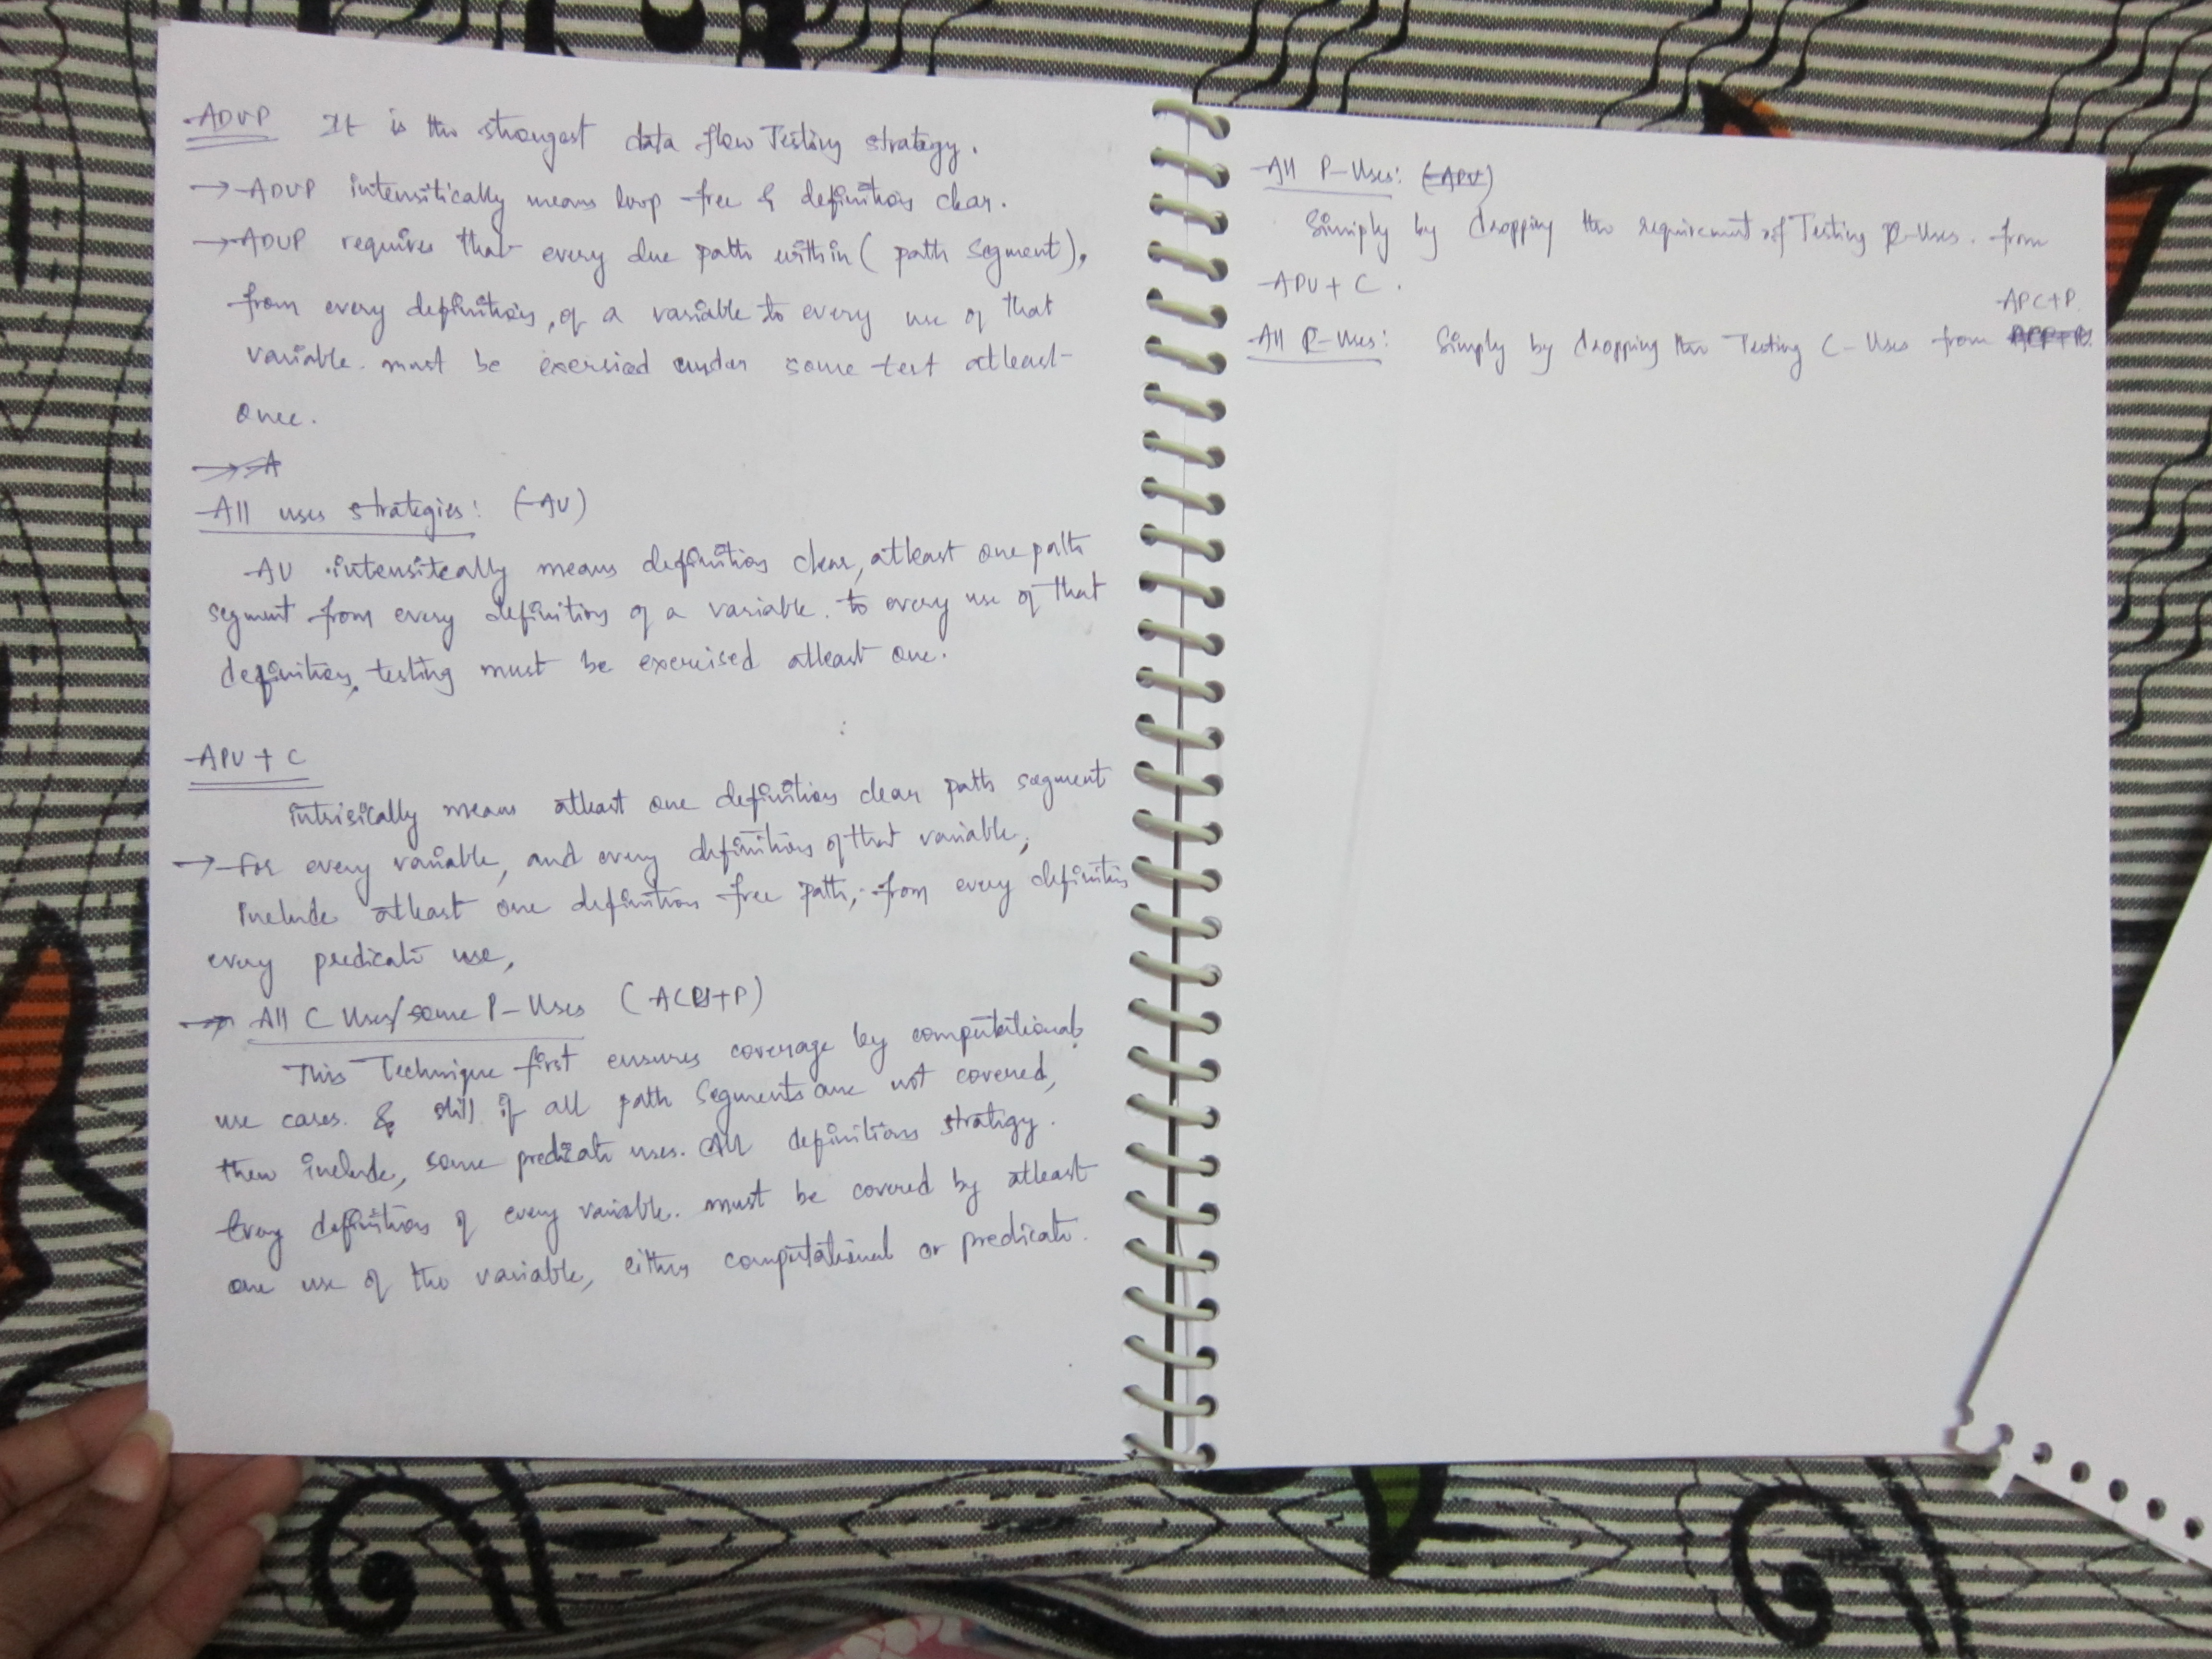 ADUP It is the strongest data flow Testing strategy.
→ ADUP intensitically means loop free & definition clear.
→ ADUP requires that every due path within (path segment),
from every definition, of a variable to every use of that
variable. must be exercised under some test atleast
one.
→ A
All uses strategies: (AU)
AU intensiteally means definition clear, atleast one path
segment from every definition of a variable. to every use of that
definition, testing must be exercised atleast one.
APU + C
intrisically means atleast one definition clear path segment
→ For every variable, and every definition of that variable,
include atleast one definition free path, from every definition
every predicate use,
→ All C Uses/some P-Uses (ACU+P)
This Technique first ensures coverage by computational
use cases. & still if all path segments are not covered,
then include, some predicate uses. All definitions strategy.
Every definition of every variable. must be covered by atleast
one use of the variable, either computational or predicate.
All P-Uses: (APU)
Simply by dropping the requirement of Testing P-Uses. from
APU + C.
All P-Uses: Simply by dropping the Testing C-Uses from APC+P.